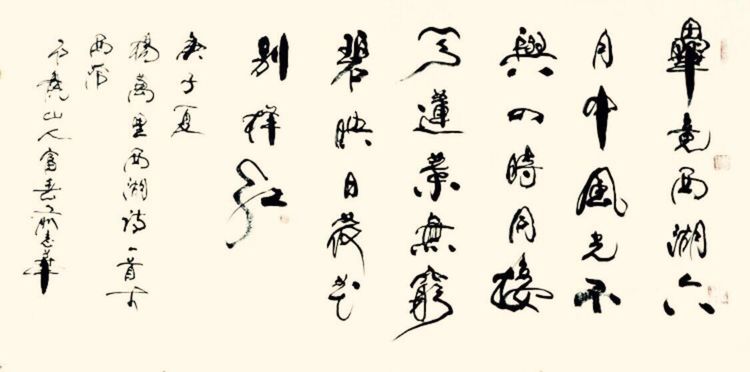 畢竟西湖六
月中風光不
與四時同接
天蓮葉無窮
碧映日荷花
別樣紅
庚子夏
楊萬里西湖詩一首於
西
山人富春俞志華